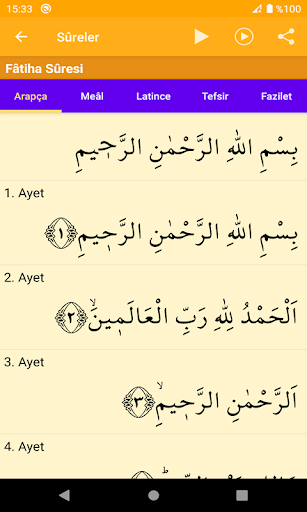 15:33 %100
Sûreler
Fâtiha Sûresi
Arapça Meâl Latince Tefsir Fazilet
بِسْمِ اللهِ الرَّحْمٰنِ الرَّح۪يمِ
1. Ayet
بِسْمِ اللهِ الرَّحْمٰنِ الرَّح۪يمِ ﴿١﴾
2. Ayet
اَلْحَمْدُ لِلهِ رَبِّ الْعَالَم۪ينَۙ ﴿٢﴾
3. Ayet
اَلرَّحْمٰنِ الرَّح۪يمِۙ ﴿٣﴾
4. Ayet